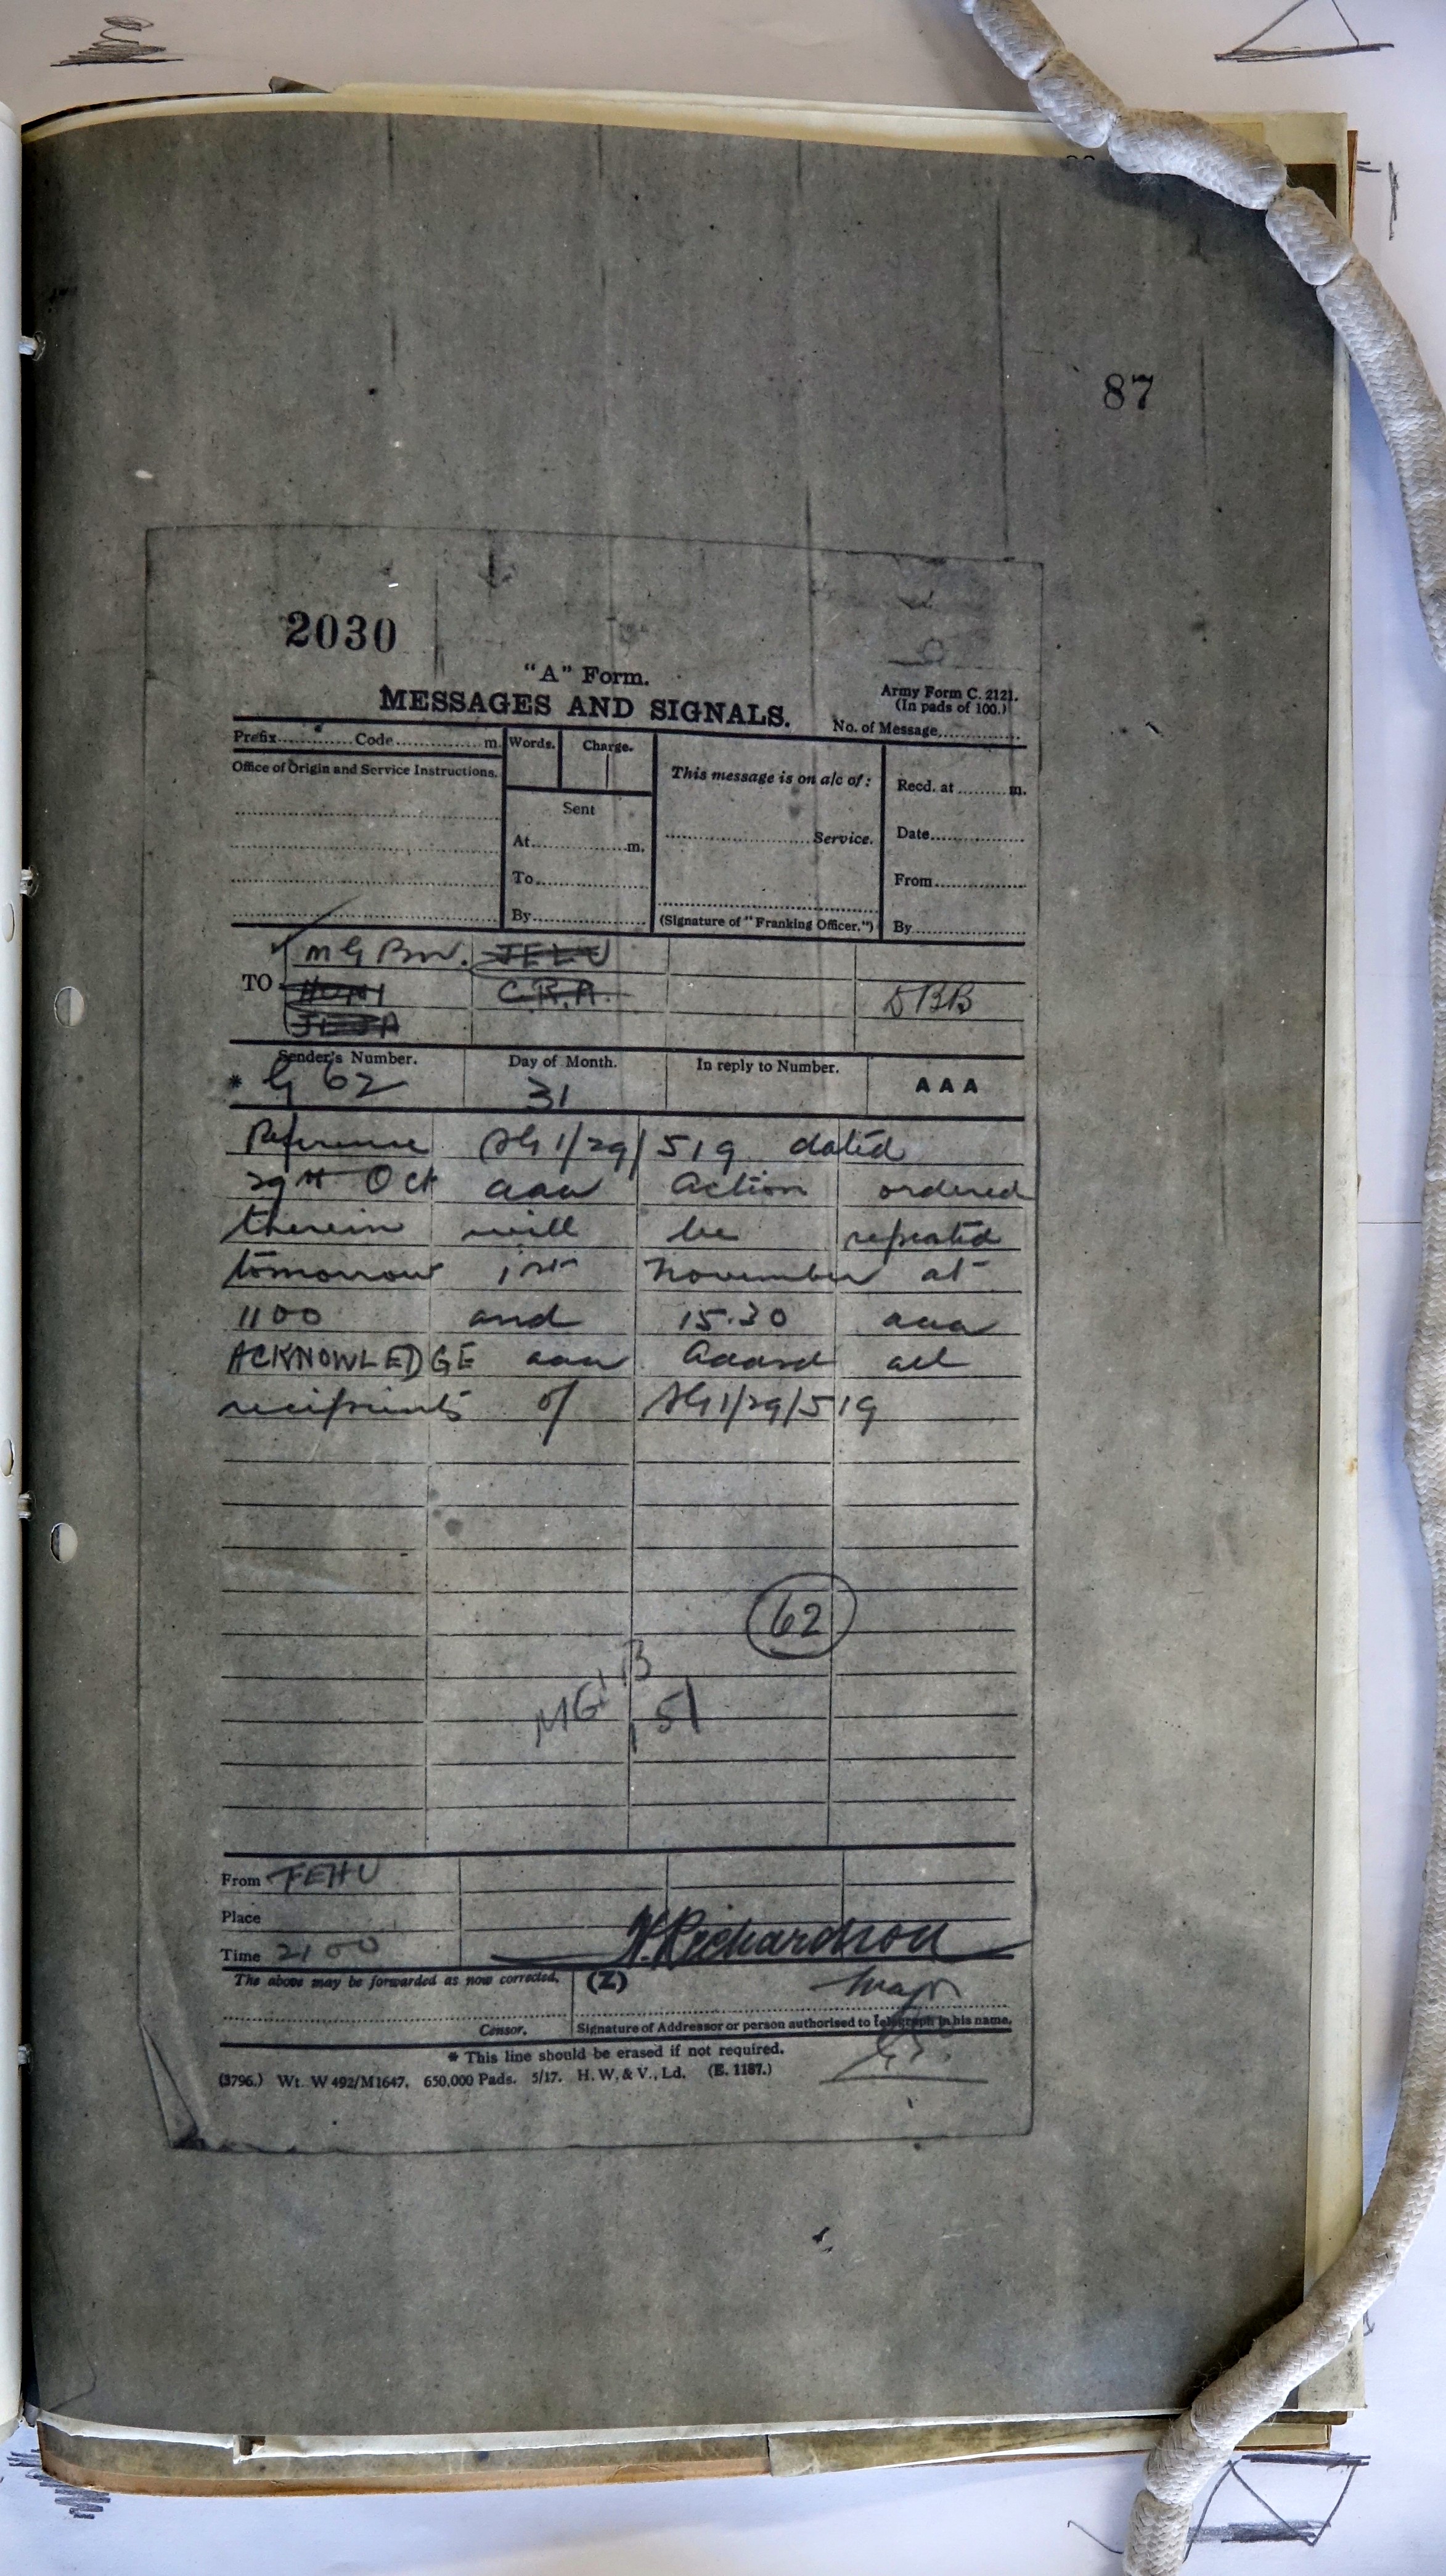 87
2030
"A" Form.
MESSAGES AND SIGNALS.
Army Form C. 2121.
(In pads of 100.)
No. of Message
Prefix Code m. Words. Charge.
Office of Origin and Service Instructions.
This message is on a/c of:
Recd. at m.
Sent
At m.
Service.
Date
To
From
By
(Signature of "Franking Officer.")
By
TO
M G Bn. JELU
C.R.A.
DBB
Sender's Number. Day of Month. In reply to Number. AAA
* G 62 31
Reference SG 1/29/519 dated
29th Oct aaa Action ordered
therein will be repeated
tomorrow 1st November at
1100 and 15.30 aaa
ACKNOWLEDGE aaa Addsd all
recipients of SG 1/29/519
62
MG 13
51
From FEHU
Place
Time 2100
H. Richardson
Major
The above may be forwarded as now corrected. (Z)
Censor. Signature of Addressor or person authorised to telegraph in his name.
* This line should be erased if not required.
(3796.) Wt. W 492/M1647. 650,000 Pads. 5/17. H. W. & V., Ld. (E. 1187.)